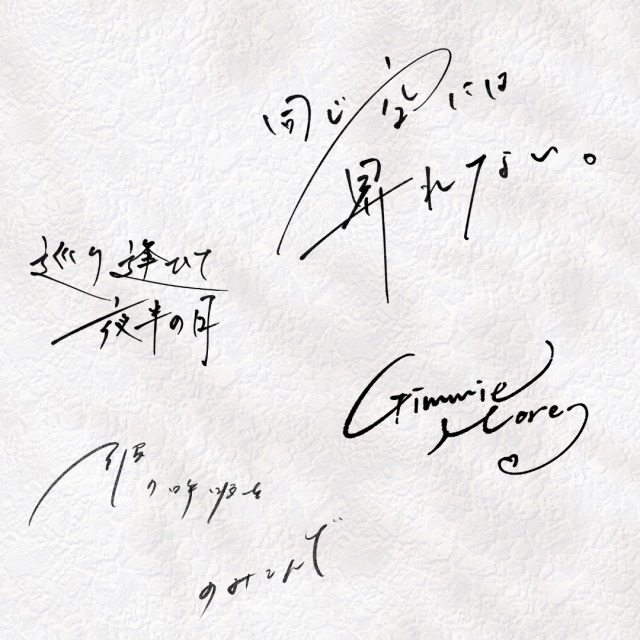 同じ空には
昇れない。
巡り逢ひて
夜半の月
Gimmie
More
彼の呼吸を
のみこんで